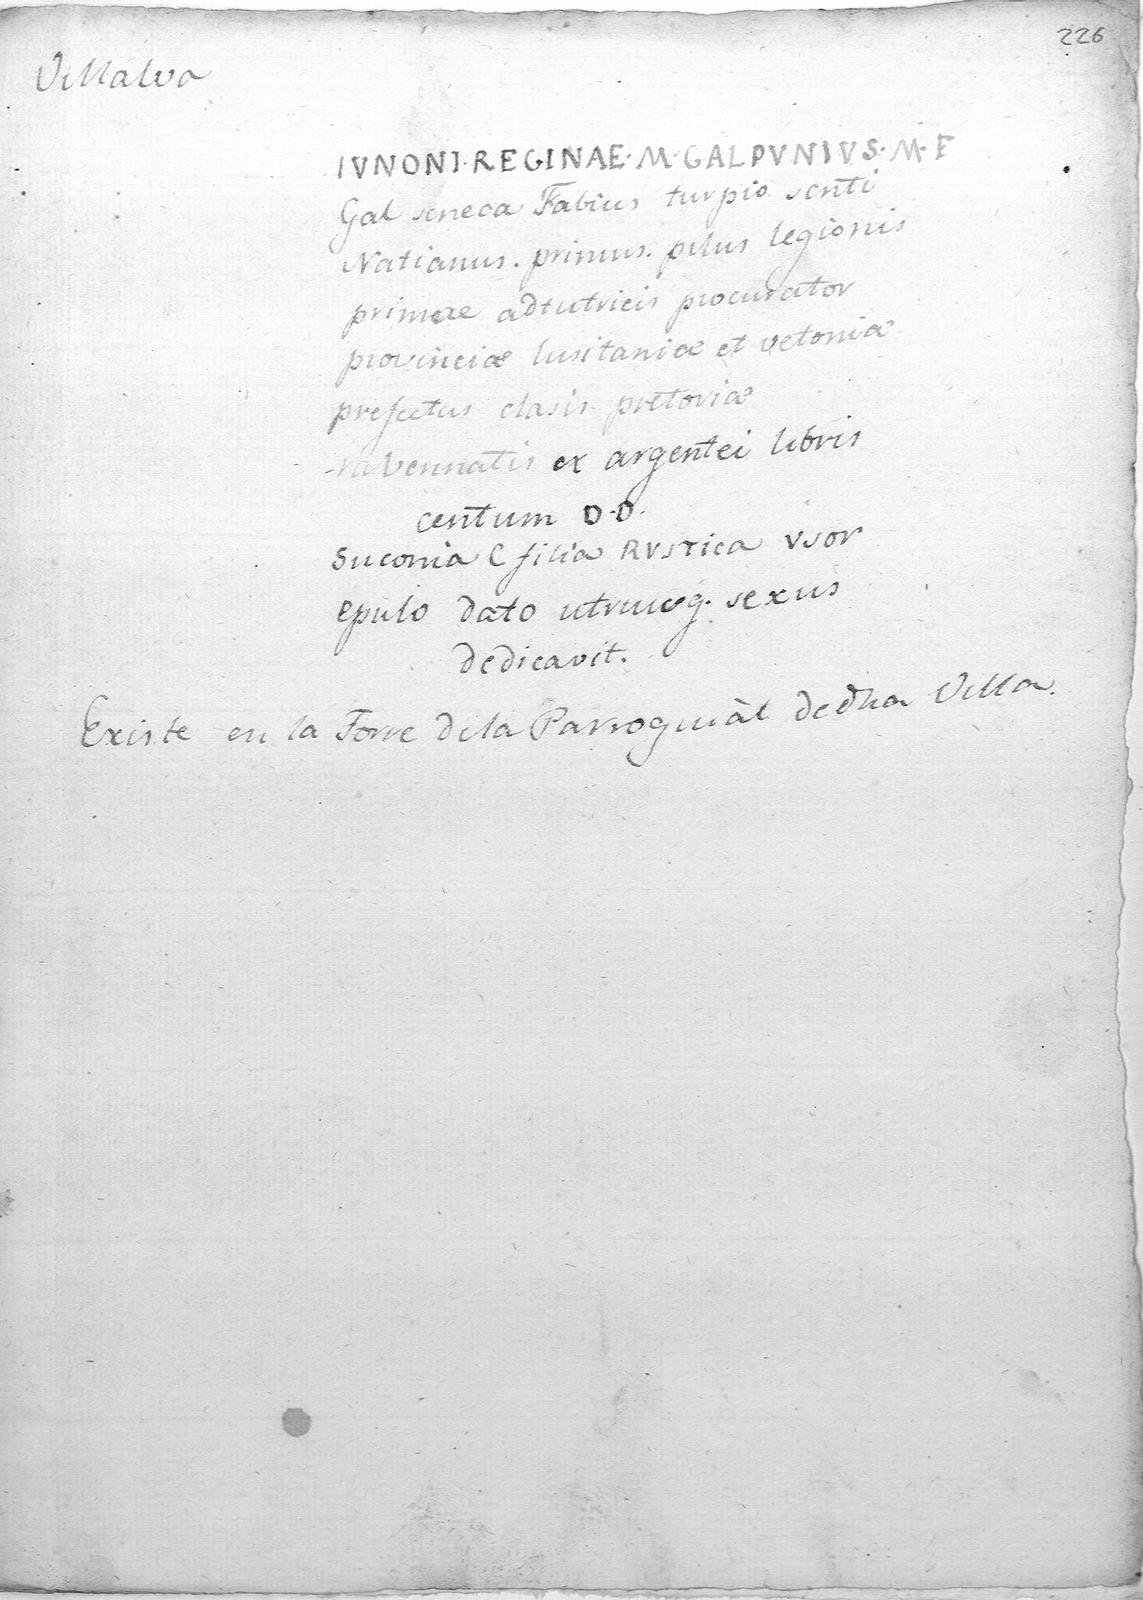 226
Villalva
IVNONI·REGINAE·M·GALPVNIVS·M·F
Gal seneca Fabius turpio senti
Natianus. primus. pilus legionis
primae adtutricis procurator
provinciæ lusitaniæ et vetoniæ
prefectus clasis pretoriæ
ravennatis ex argentei libris
centum D·D.
Suconia C filia RVSTica vsor
epulo dato utruuq. sexus
dedicavit.
Existe en la Torre dela Parroquiàl dedha Villa.